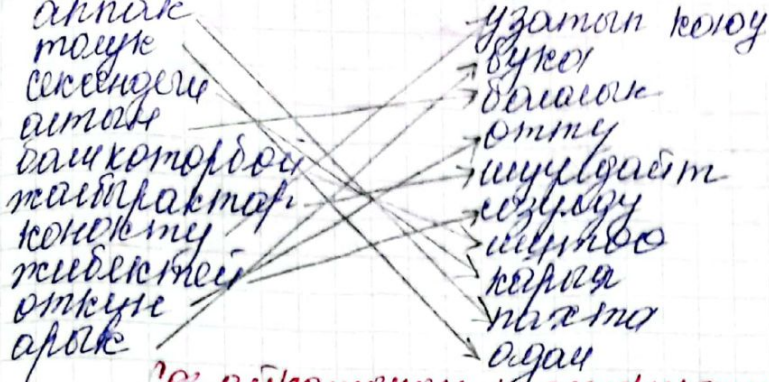 аппак
толук
сексендеги
алтын
баш которбой
жалбырактар
конокту
жибектей
откүн
арык
узатып коюу
бука
балалык
өттү
шуулдайт
созулду
мутоо
карыя
пахта
адам